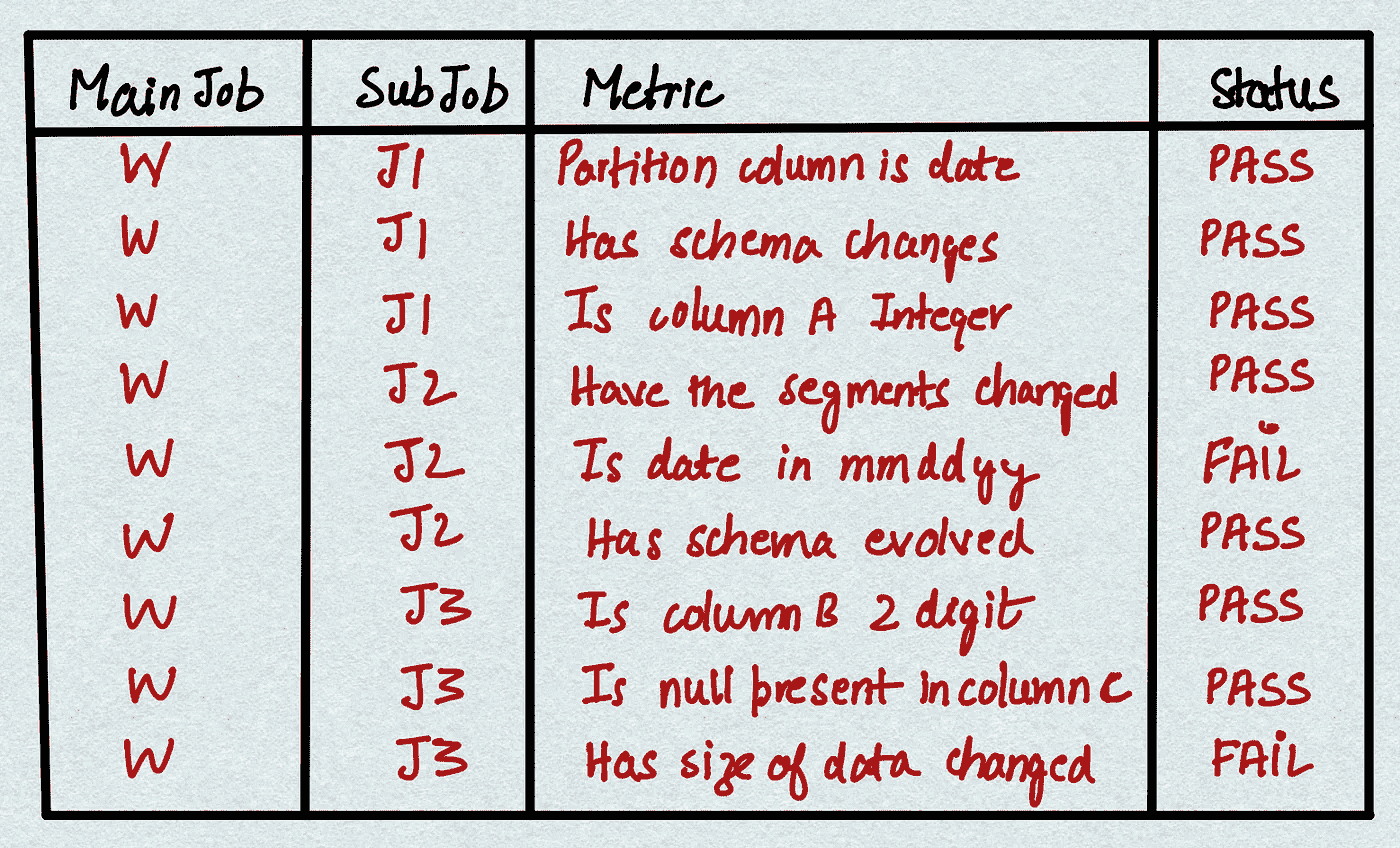 Main Job SubJob Metric Status
W J1 Partition column is date PASS
W J1 Has schema changes PASS
W J1 Is column A Integer PASS
W J2 Have the segments changed PASS
W J2 Is date in mmddyy FAIL
W J2 Has schema evolved PASS
W J3 Is column B 2 digit PASS
W J3 Is null present in column C PASS
W J3 Has size of data changed FAIL